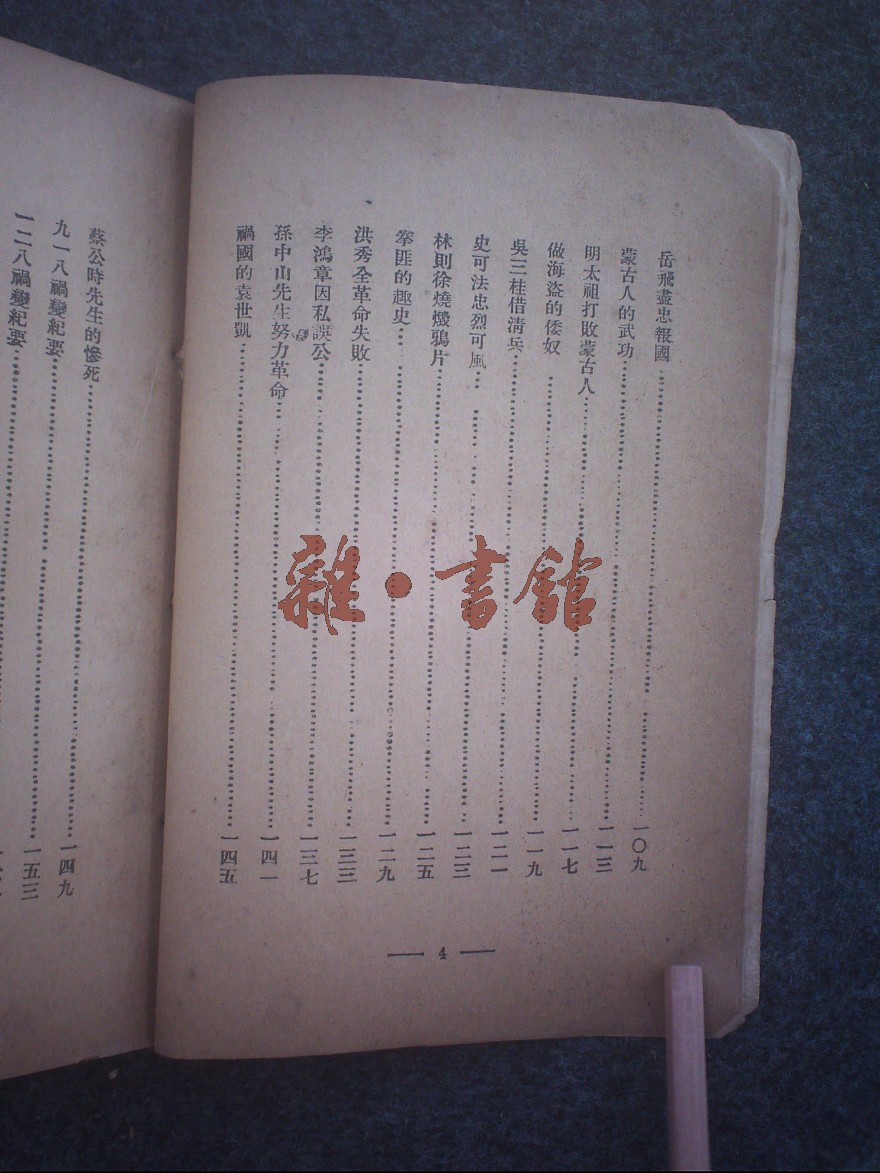 岳飛盡忠報國⋯⋯一〇九
蒙古人的武功⋯⋯一一三
明太祖打敗蒙古人⋯⋯一一七
做海盜的倭奴⋯⋯一一九
吳三桂借淸兵⋯⋯一二一
史可法忠烈可風⋯⋯一二三
林則徐燒燬鴉片⋯⋯一二五
拳匪的趣史⋯⋯一二九
洪秀全革命失敗⋯⋯一三三
李鴻章因私誤公⋯⋯一三七
孫中山先生努力革命⋯⋯一四一
禍國的袁世凱⋯⋯一四五
— 4 —
蔡公時先生的慘死⋯⋯一四九
九一八禍變紀要⋯⋯一五三
一二八禍變紀要⋯⋯
雜·書館